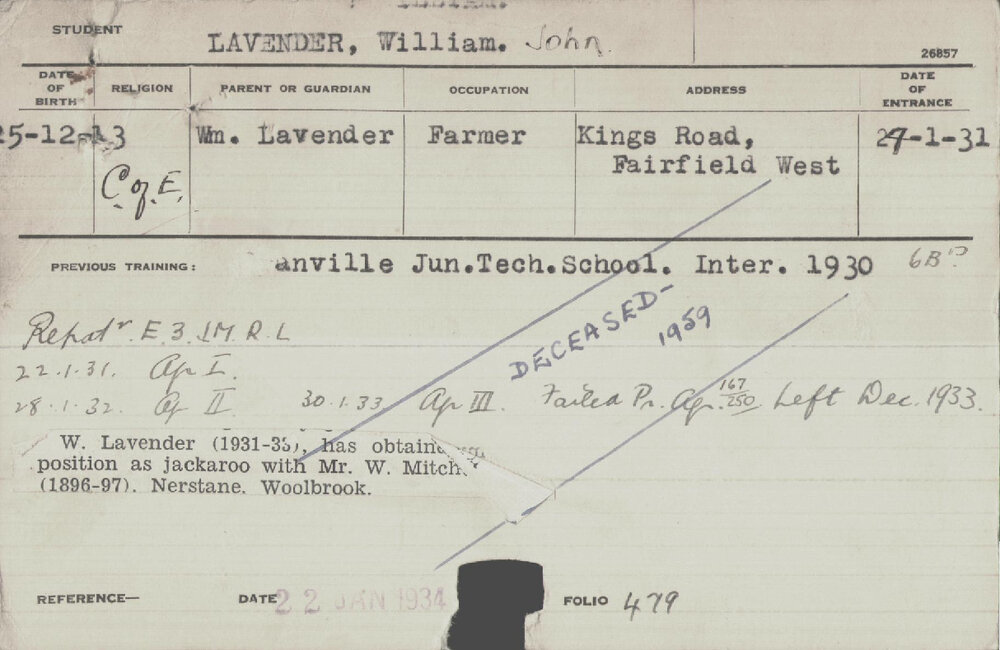 STUDENT
LAVENDER, William. John.
26857
DATE OF BIRTH
RELIGION
PARENT OR GUARDIAN
OCCUPATION
ADDRESS
DATE OF ENTRANCE
25-12-13
C of E.
Wm. Lavender
Farmer
Kings Road,
Fairfield West
-1-31
PREVIOUS TRAINING:
anville Jun.Tech.School. Inter. 1930
DECEASED-
1959
22.1.31. Ag I.
28.1.32. Ag II. 30.1.33 Ag III. Failed Pr. Agr. 167/250 Left Dec. 1933.
W. Lavender (1931-33), has obtain
position as jackaroo with Mr. W. Mitch
(1896-97). Nerstane. Woolbrook.
REFERENCE—
DATE 22 JAN 1934
FOLIO 479